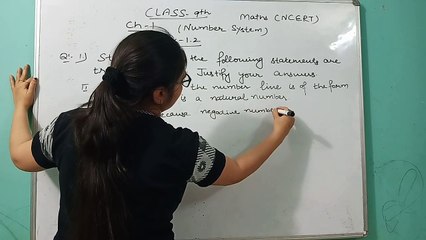 CLASS 9th Maths (NCERT)
Ch-1 (Number System)
1.2
Q. 1) St the following statements are
tr Justify your answers
II the number line is of the form
is a natural number
ecause negative numbe